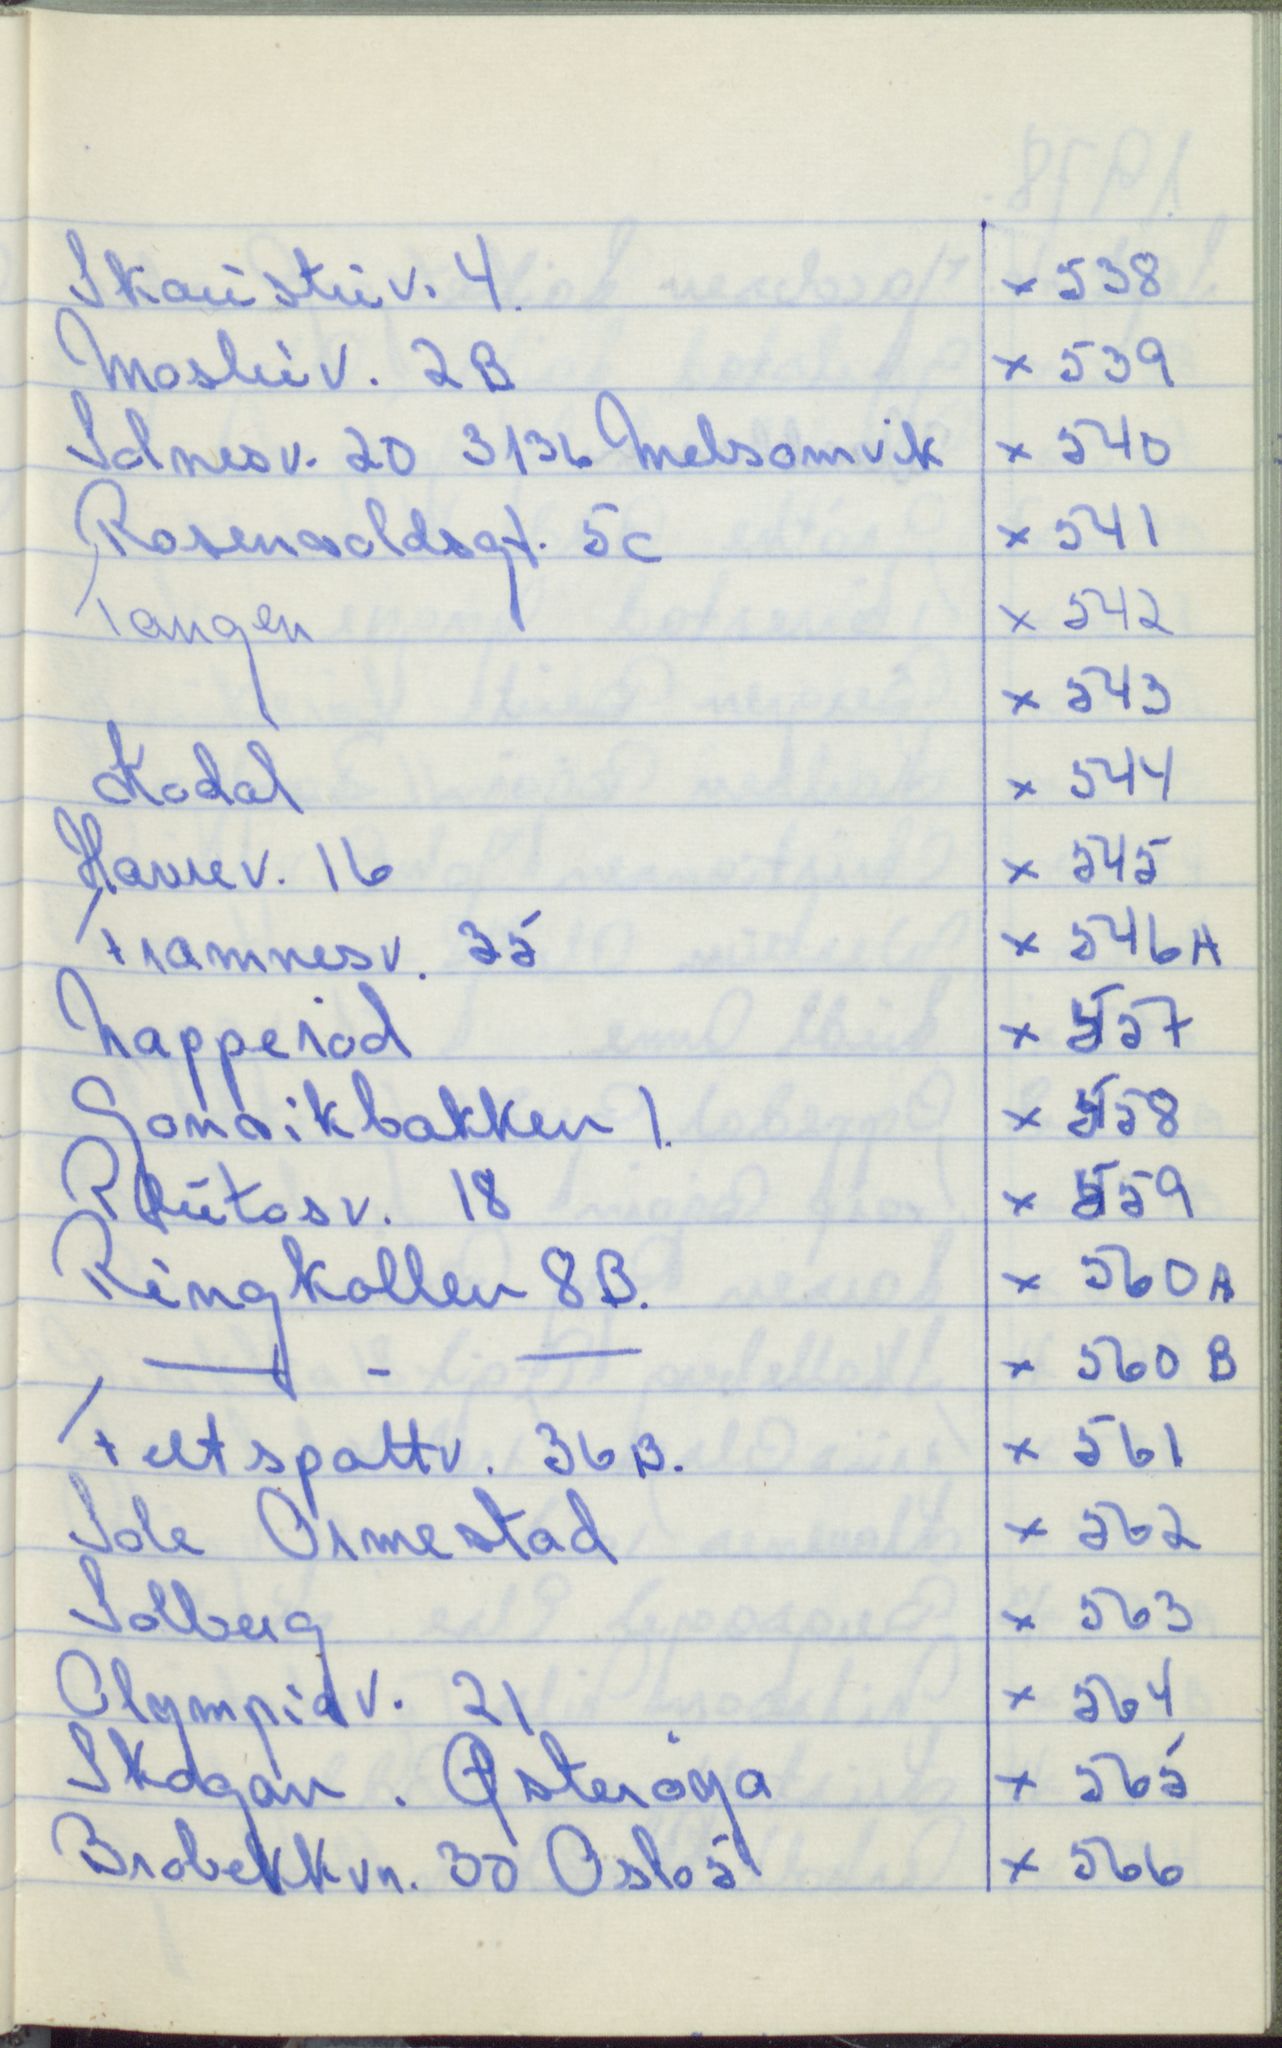 Skauståv. 4. x 538
Moslåv. 2B x 539
Solnesv. 20 3136 Melsomvik x 540
Rosenvoldsgt. 5c x 541
Tangen x 542
x 543
Kodal x 544
Havrev. 16 x 545
Framnesv. 35 x 546A
Napperød x 557
Gonvikbakken 1. x 558
Rřutosv. 18 x 559
Ringkollen 8B. x 560A
— - — x 560 B
Feltspattv. 36B. x 561
Sole Ormestad x 562
Solberg x 563
Olympiav. 21 x 564
Skogan. Østerøya x 565
Brobekkvn. 30 Oslo 5 x 566